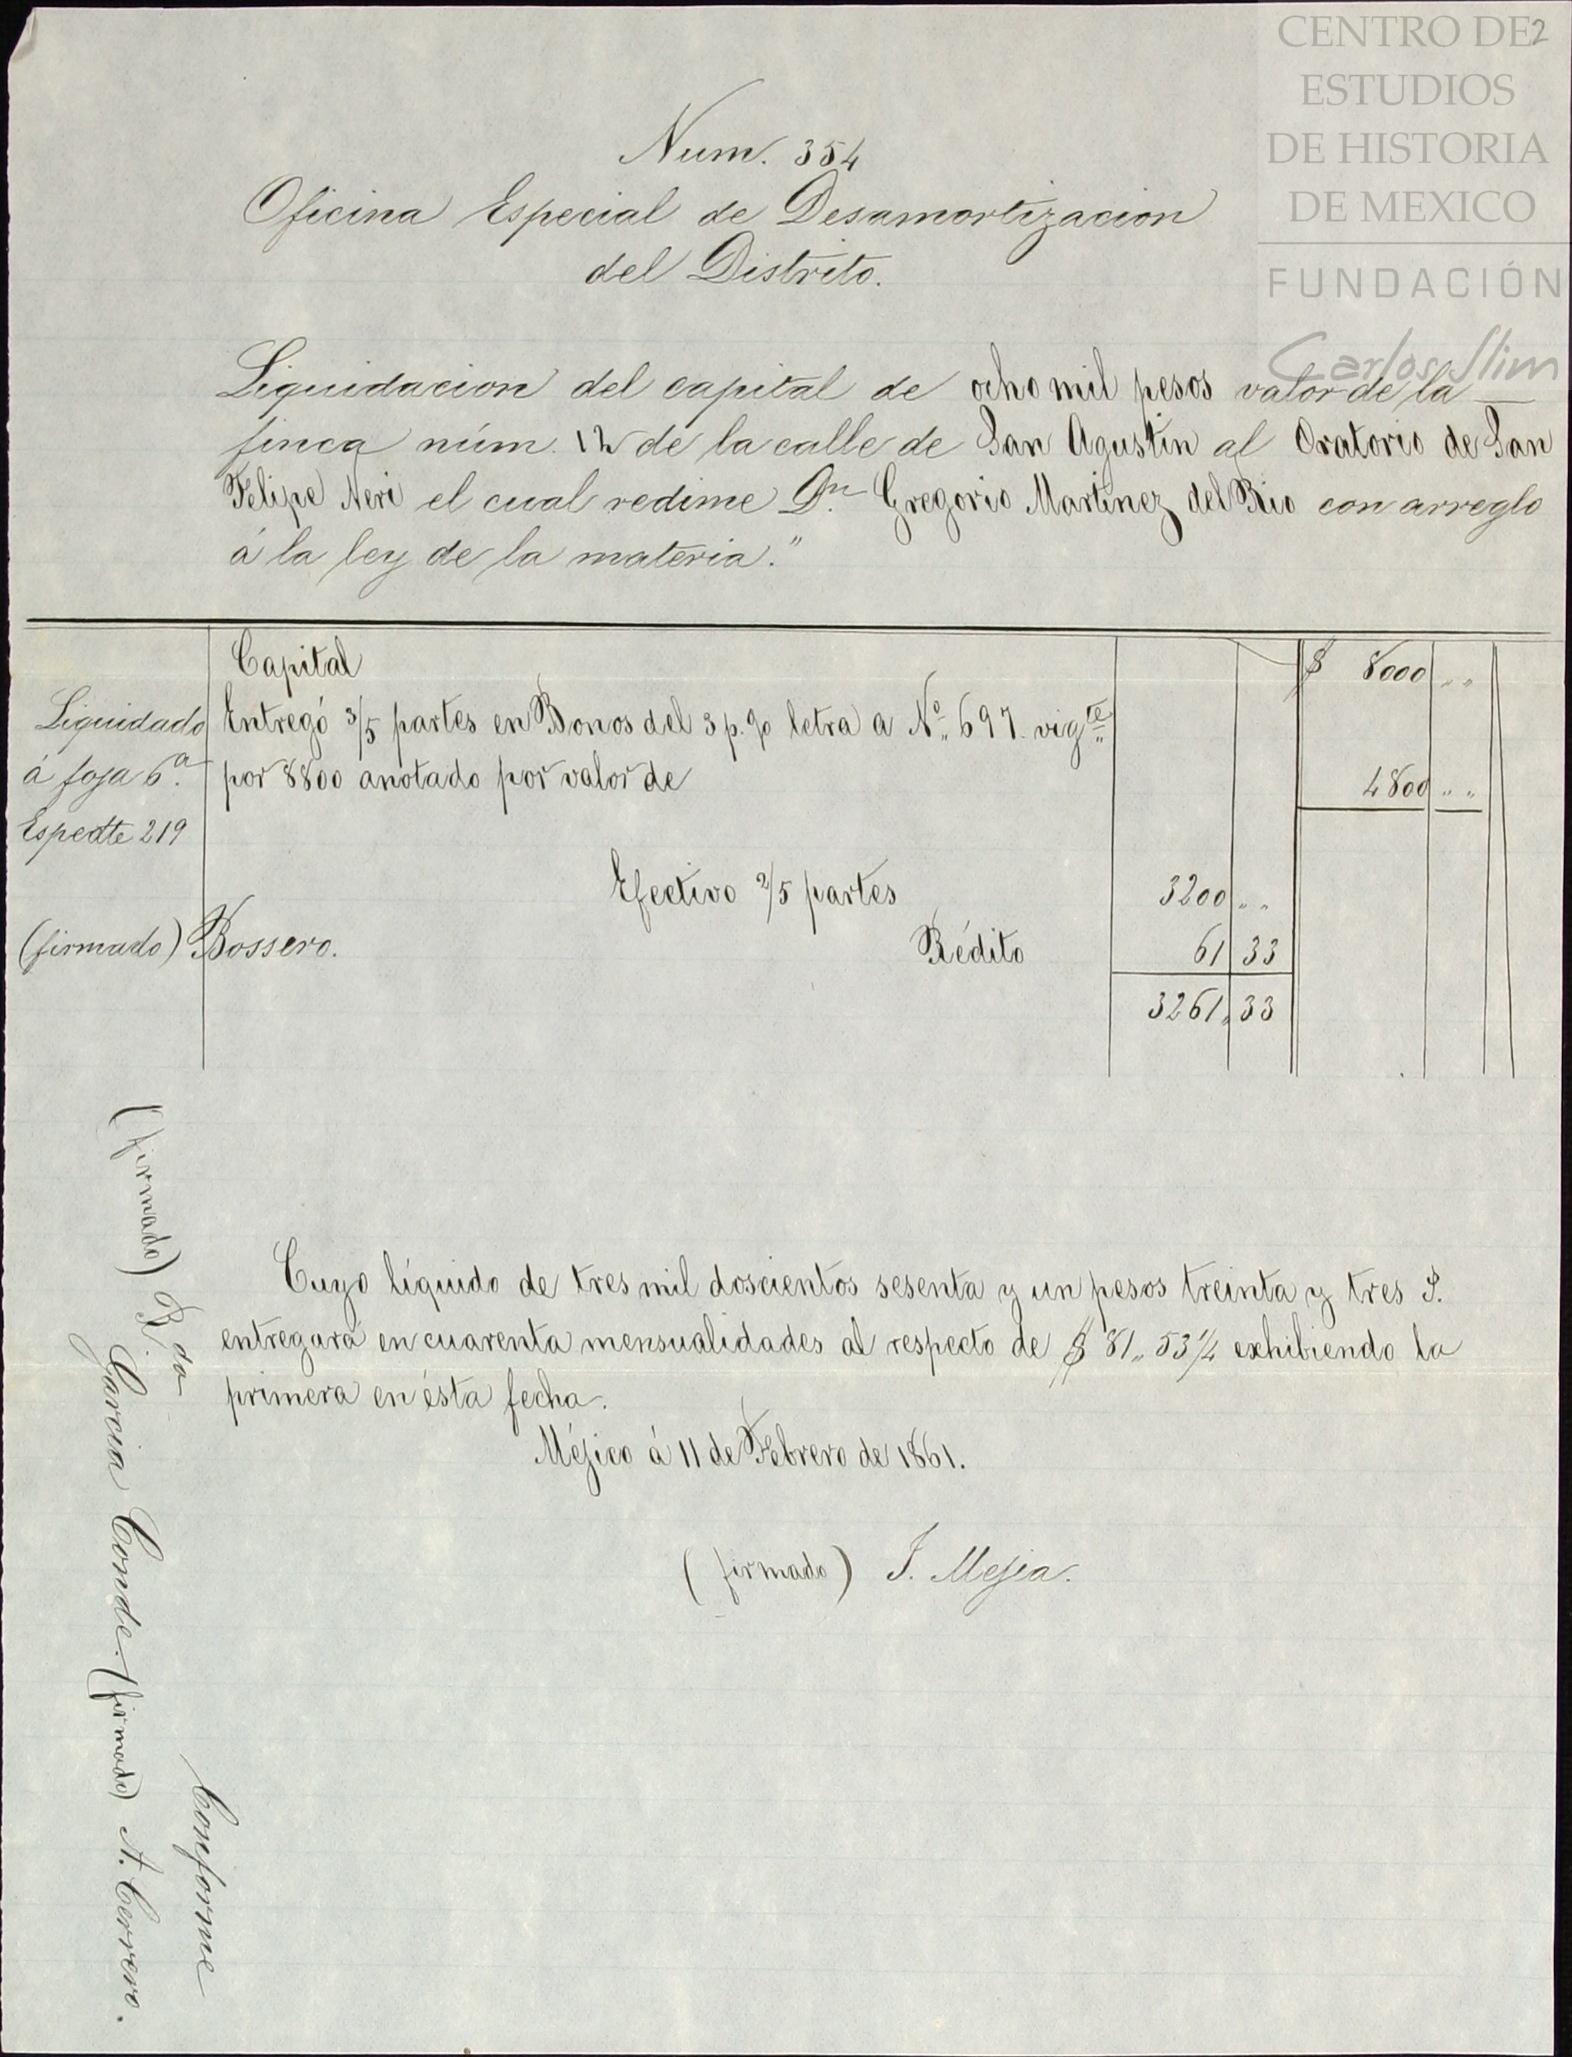 CENTRO DE
ESTUDIOS
DE HISTORIA
DE MEXICO
FUNDACIÓN
Carlos Slim
2
Num. 354
Oficina Especial de Desamortizacion
del Distrito.
Liquidacion del capital de ocho mil pesos valor de la
finca núm. 12 de la calle de San Agustin al Oratorio de San
Felipe Neri el cual redime Dn. Gregorio Martinez del Rio con arreglo
á la ley de la materia."
Capital $ 8000 " "
Entregó 3/5 partes en Bonos del 3 p.% letra a No. 697. vigte
por 8800 anotado por valor de 4800 " "
Liquidado
á foja 6a.
Espedte 219
(firmado) Bossero.
Efectivo 2/5 partes 3200 " "
Rédito 61 33
3261 " 33
Cuyo líquido de tres mil doscientos sesenta y un pesos treinta y tres
entregará en cuarenta mensualidades al respecto de $ 81 " 53 1/4 exhibiendo la
primera en ésta fecha.
Méjico á 11 de Febrero de 1861.
(firmado) J. Mejia.
(firmado) R.da
Garcia Conde. (firmado) A. Cerrero.
Conforme